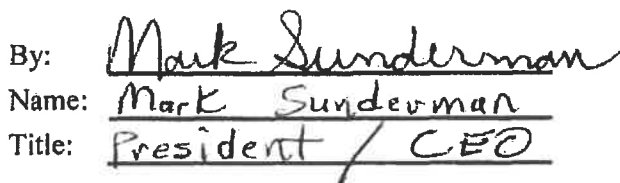 By: Mark Sunderman
Name: Mark Sunderman
Title: President / CEO